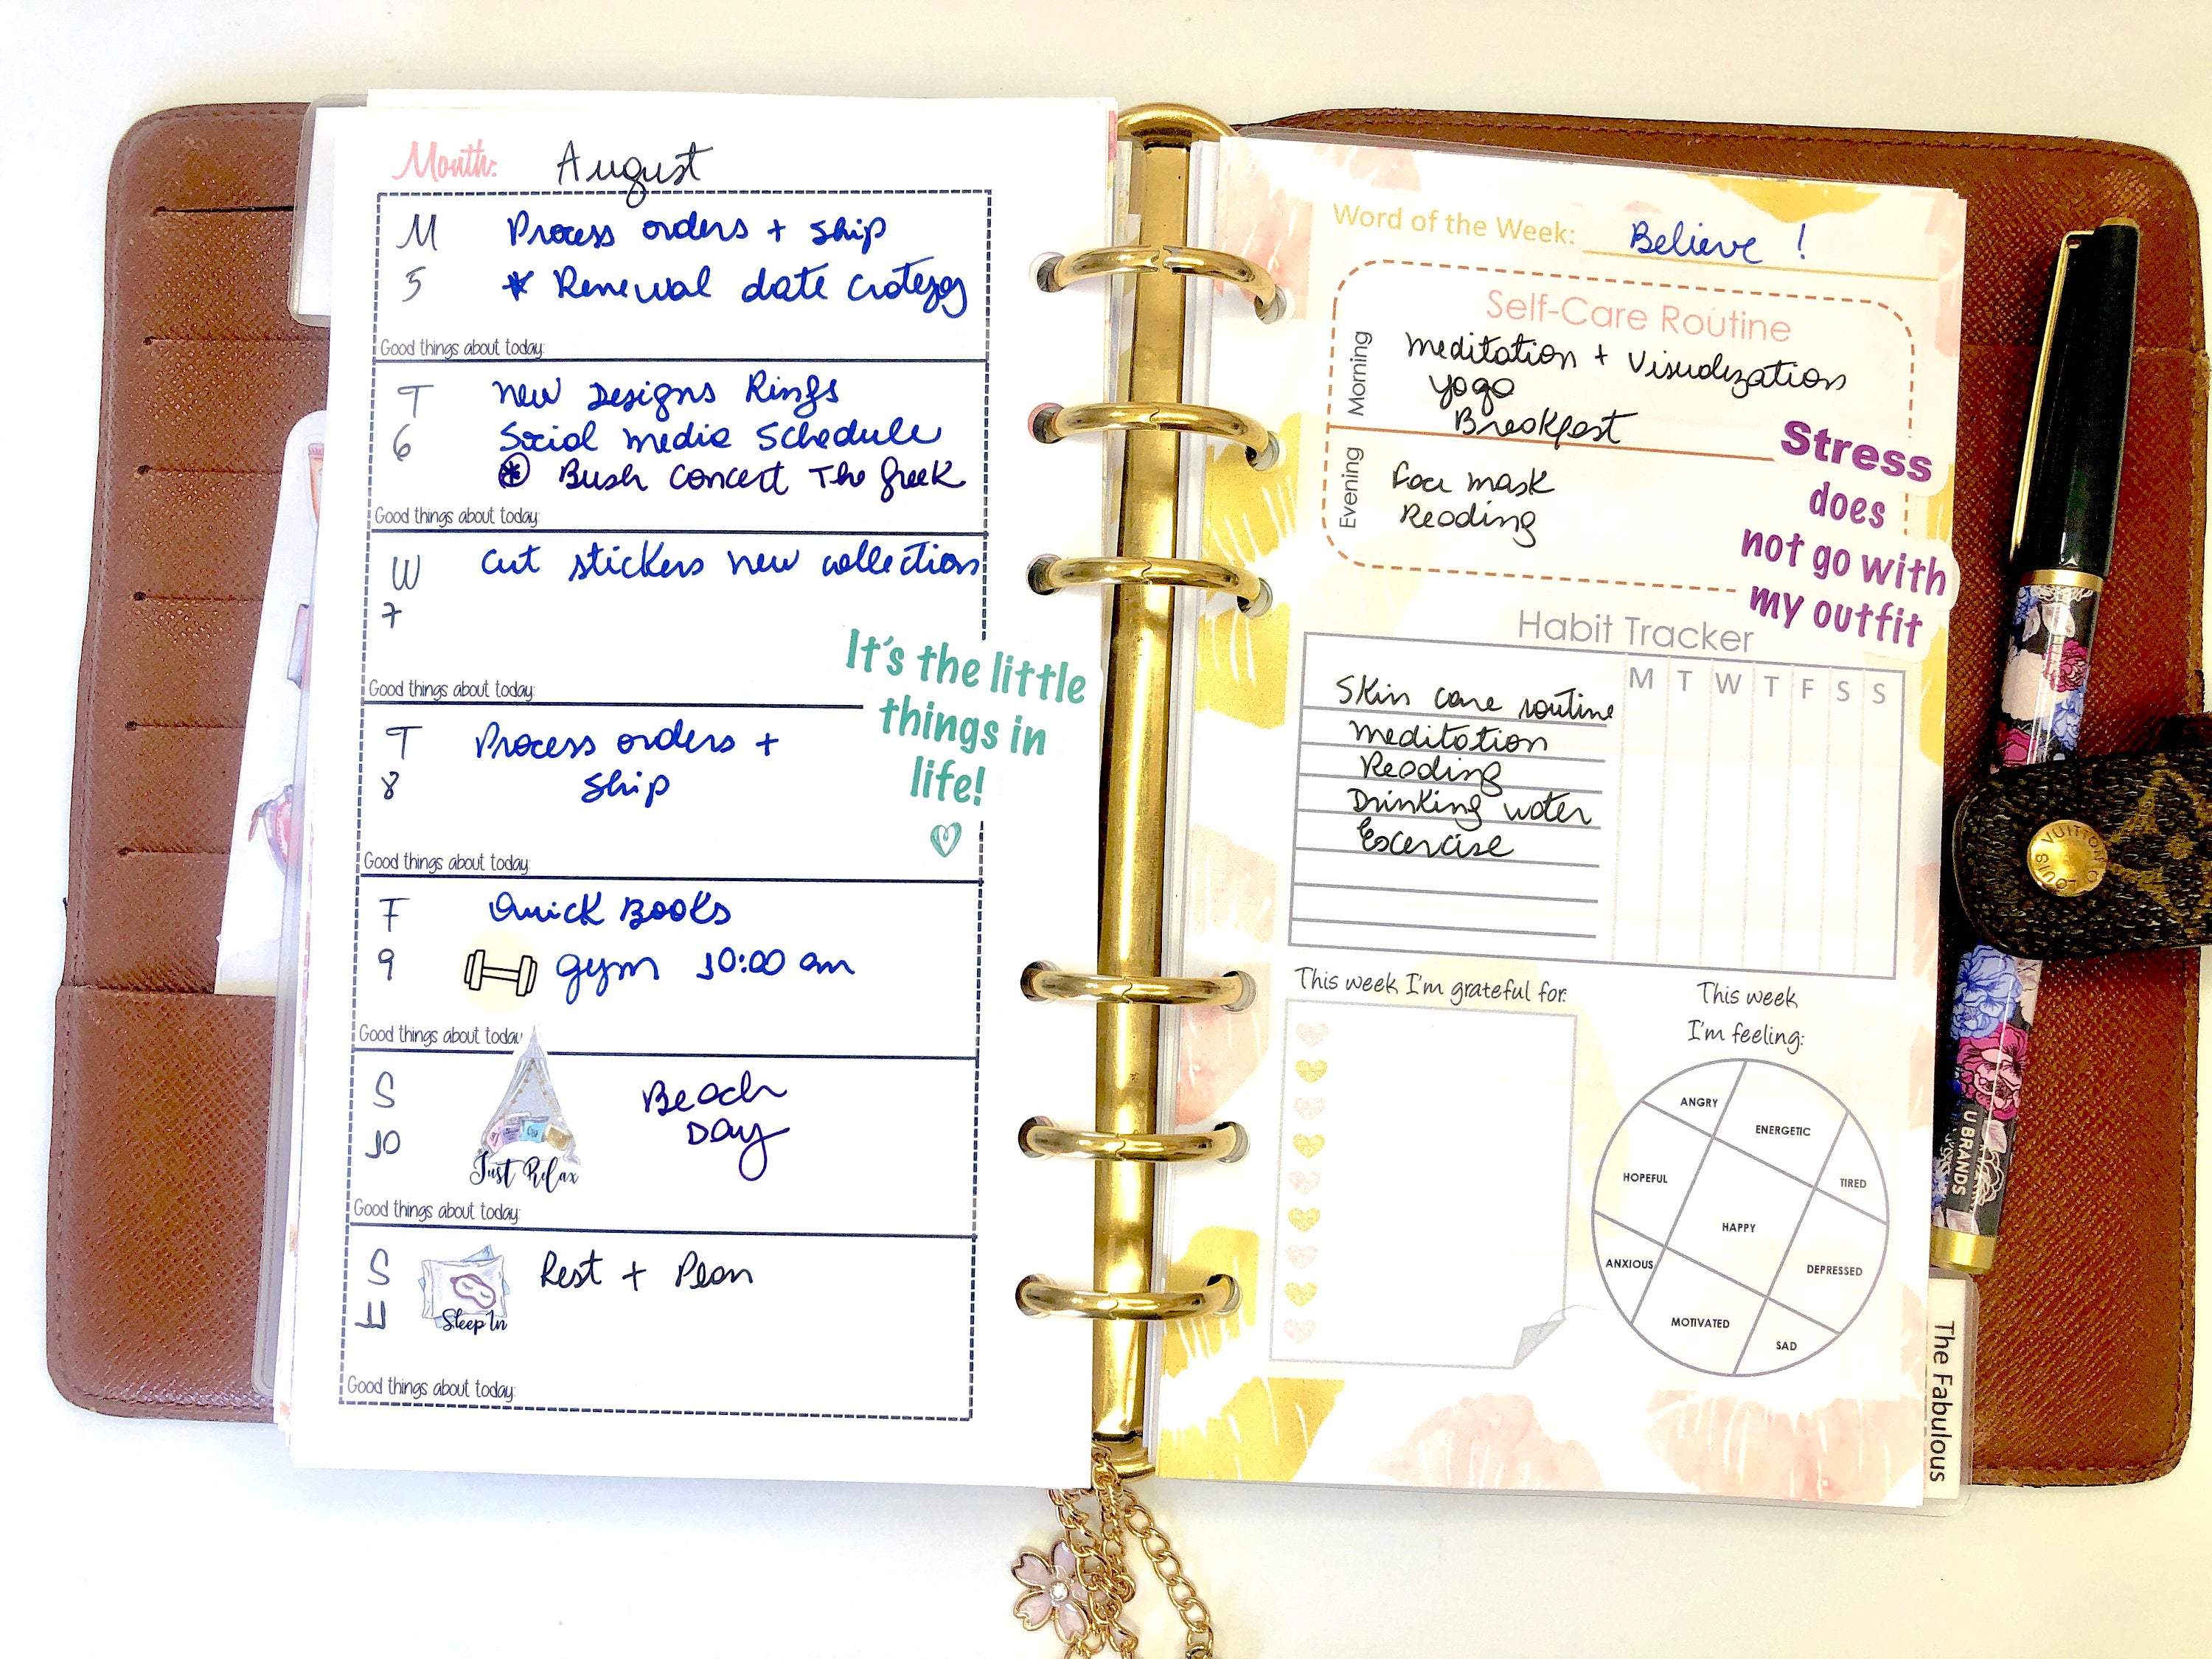 Month: August
M
5
Process orders + ship
* Renewal date
Good things about today:
T
6
New Designs Rings
Social media Schedule
* Bush Concert The Greek
Good things about today:
W
7
Cut stickers new collection
Good things about today:
It's the little
things in
life!
T
8
Process orders +
ship
Good things about today:
F
9
Quick Books
gym 10:00 am
Good things about today:
S
10
Just Relax
Beach
Day
Good things about today:
S
11
Sleep In
Rest + Plan
Good things about today:
Word of the Week: Believe !
Self-Care Routine
Morning
Meditation + Visualization
Yoga
Breakfast
Evening
Face mask
Reading
Stress
does
not go with
my outfit
Habit Tracker
M T W T F S S
Skin care routine
Meditation
Reading
Drinking water
Excercise
This week I'm grateful for:
This week
I'm feeling:
ANGRY
ENERGETIC
HOPEFUL
TIRED
HAPPY
ANXIOUS
DEPRESSED
MOTIVATED
SAD
LOUIS VUITTON
U BRANDS
The Fabulous